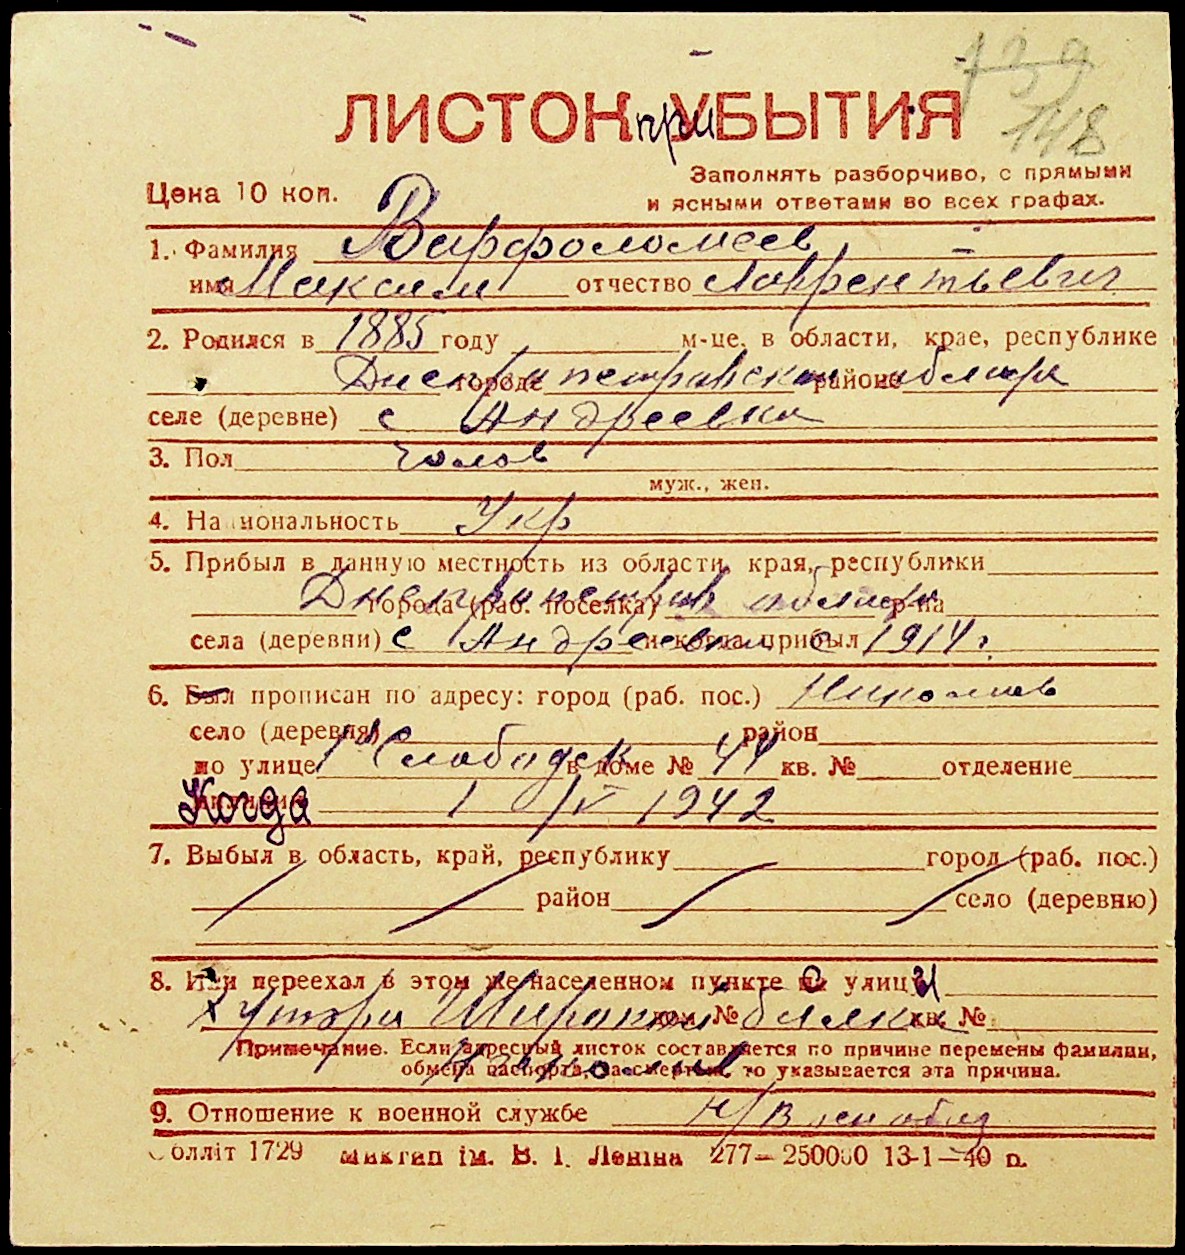 739
148
ЛИСТОК при УБЫТИЯ
Заполнять разборчиво, с прямыми
Цена 10 коп.
и ясными ответами во всех графах.
1. Фамилия Варфоломеев
имя Максим отчество Лаврентьевич
2. Родился в 1885 году м-це, в области, крае, республике
Днепропетровской городе районе области
селе (деревне) с Андреевка
3. Пол чолов
муж., жен.
4. Национальность Укр
5. Прибыл в данную местность из области, края, республики
Днепропетров города (раб. поселка) области р-на
села (деревни) с Андреевки и когда прибыл с 1914 г.
6. Был прописан по адресу: город (раб. пос.) Николаев
село (деревня) район
по улице 1 Слободск в доме № 44 кв. № отделение
Когда 1 IV 1942
7. Выбыл в область, край, республику город (раб. пос.)
район село (деревню)
8. Или переехал в этом же населенном пункте с улицы
Хутора Широкая балка дом № кв. №
Примечание. Если адресный листок составляется по причине перемены фамилии,
обмена паспорта, за смертью, то указывается эта причина.
Николаев
9. Отношение к военной службе
олліт 1729 Миктип ім. В. І. Леніна 277—250000 13-1—40 р.